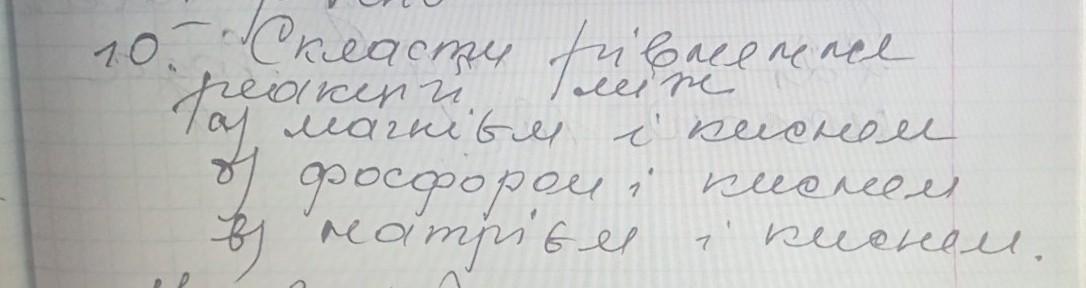 10. Скласти рівняння
реакції між
а) магнієм і киснем
б) фосфором і киснем
в) натрієм і киснем.